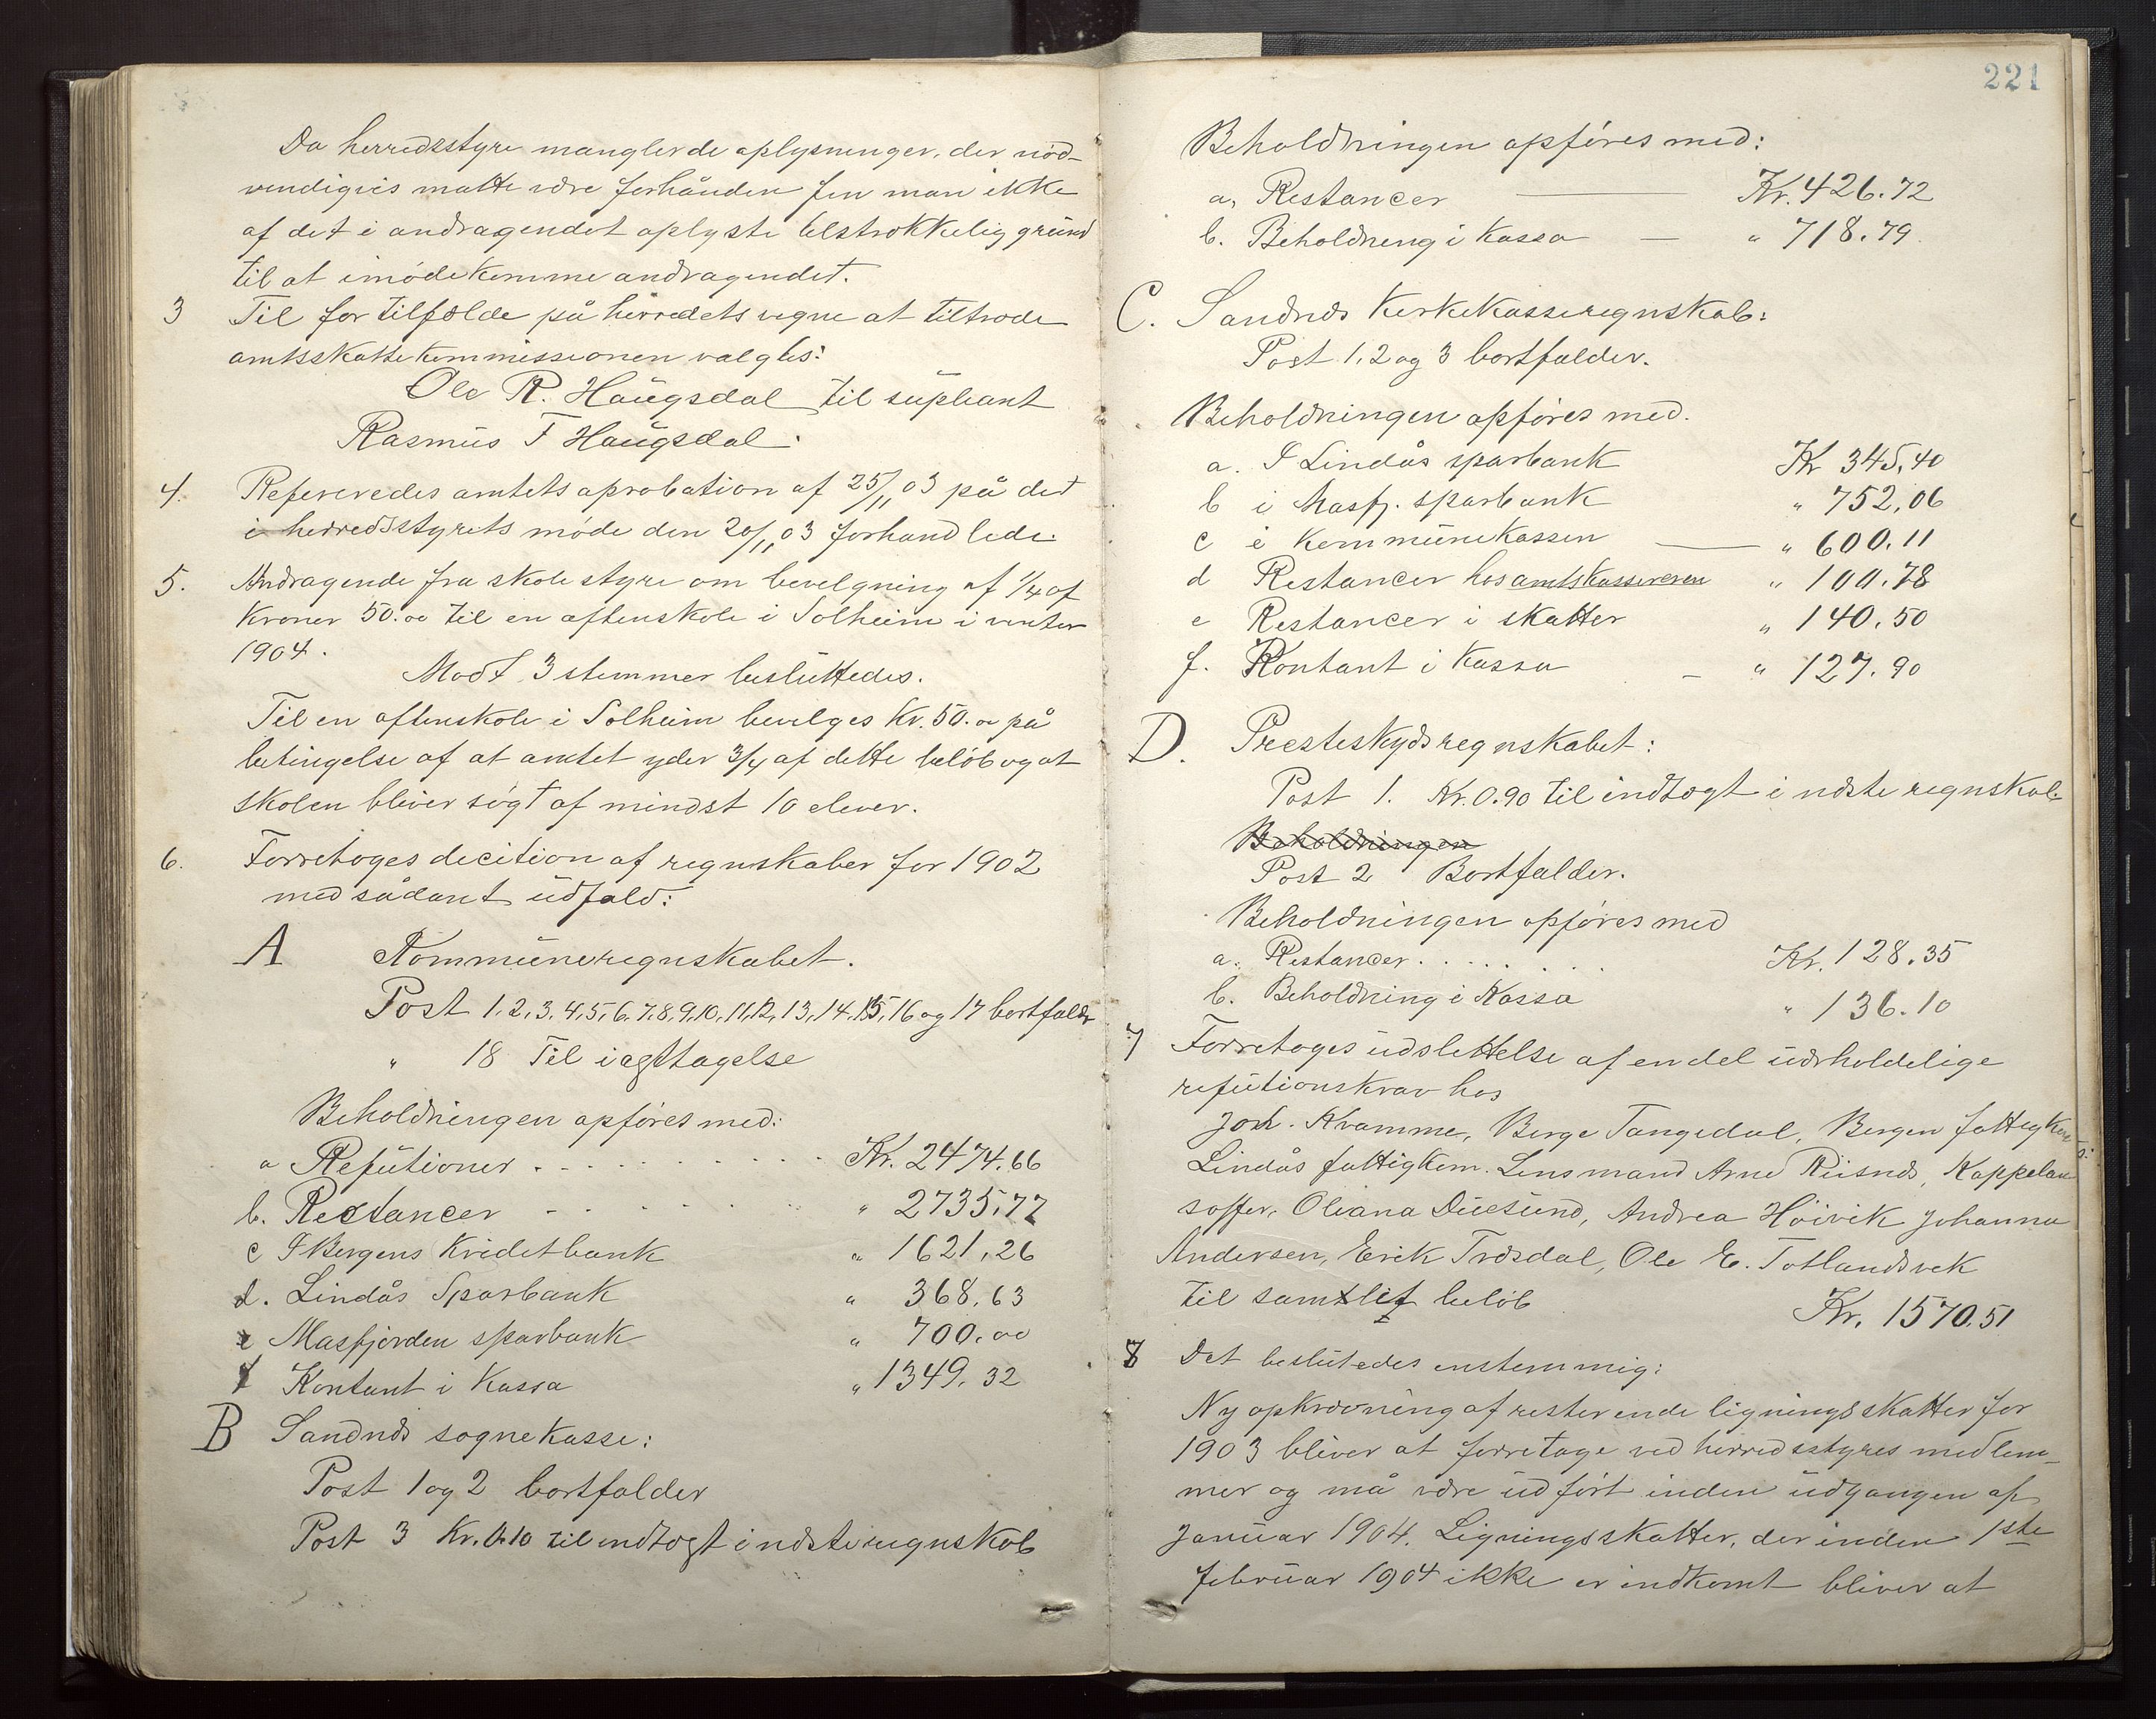 Da herredsstyre manglerde oplysninger, der nöd-
vendigvis matte være forhånden fin man ikke
af det i andragendet oplyste tilstrækkelig grund
til at imödekomme andragendet.
3 Til for tilfælde på herredets vegne at tiltræde
amtsskattekommissionen valgtes:
Ole R. Haugsdal til supleant
Rasmus F Haugsdal.
4. Refereredes amtets aprobation af 25/11 03 på det
i herredsstyrets möde den 20/11 03 forhandlede.
5. Andragende fra skolestyre om bevelgning af 1/4 af
Kroner 50.00 til en aftenskole i Solheim i vinter
1904.
Modt 3 stemmer besluttedes.
Til en aftenskole i Solheim bevelges Kr. 50.00 på
betingelse af at amtet yder 3/4 af dette belöb og at
skolen bliver sögt af mindst 10 elever.
6. Forretoges decition af regnskaber for 1902
med sådant udfald:
A Kommuneregnskabet.
Post 1, 2, 3, 4, 5, 6, 7, 8, 9, 10, 11, 12, 13, 14, 15, 16 og 17 bortfalder
" 18 Til iagttagelse
Beholdningen opföres med:
a Refutioner . . . . . . . . . . Kr. 2474.66
b. Restancer - - - - - - " 2735,77
c I Bergens Kridetbank " 1621,26
d. Lindås Sparbank " 368,63
e Masfjorden sparbank " 700.00
f Kontant i Kassa " 1349.32
B Sandnæs sognekasse:
Post 1 og 2 bortfalder
Post 3 Kr. 0.10 til indtægt i næste regnskab
221
Beholdningen opföres med:
a, Restancer Kr. 426.72
b. Beholdneng i Kassa — " 718.79
C. Sandnæs Kerkekasseregnskab:
Post 1, 2 og 3 bortfalder.
Beholdningen opföres med.
a. I Lindås sparbank Kr 345,40
b i Masfj. sparbank " 752,06
c i Kommunekassen — " 600.11
d Restancer hos amtskassereren " 100.78
e Restancer i skatter " 140.50
f. Kontant i Kassa — " 127.90
D. Presteskydsregnskabet:
Post 1. Kr. 0.90 til indtægt i næste regnskab.
Beholdningen
Post 2 Bortfalder.
Beholdningen opföres med
a. Restancer . . . . . . . Kr. 128.35
b. Beholdning i Kassa " 136.10
7 Forretoges udslettelse af en del uerholdelige
refutionskrav hos
Joh. Kvamme, Berge Tangedal, Bergen fattigkom
Lindås fattigkom. Lensmand Arne Risnæs, Kappelan
soffer, Oliana Duesund, Andrea Höivik Johanna
Andersen, Erik Træsdal, Ole E. Totlandsvek
til samtlig belöb Kr. 1570.51
8 Det beslutedes enstemmig:
Ny opkrævning af resterende ligningsskatter for
1903 bliver at forretage ved herredsstyres medlem-
mer og må være udfört inden udgangen af
Januar 1904. Ligningsskatter, der inden 1ste
februar 1904 ikke er indkomt bliver at